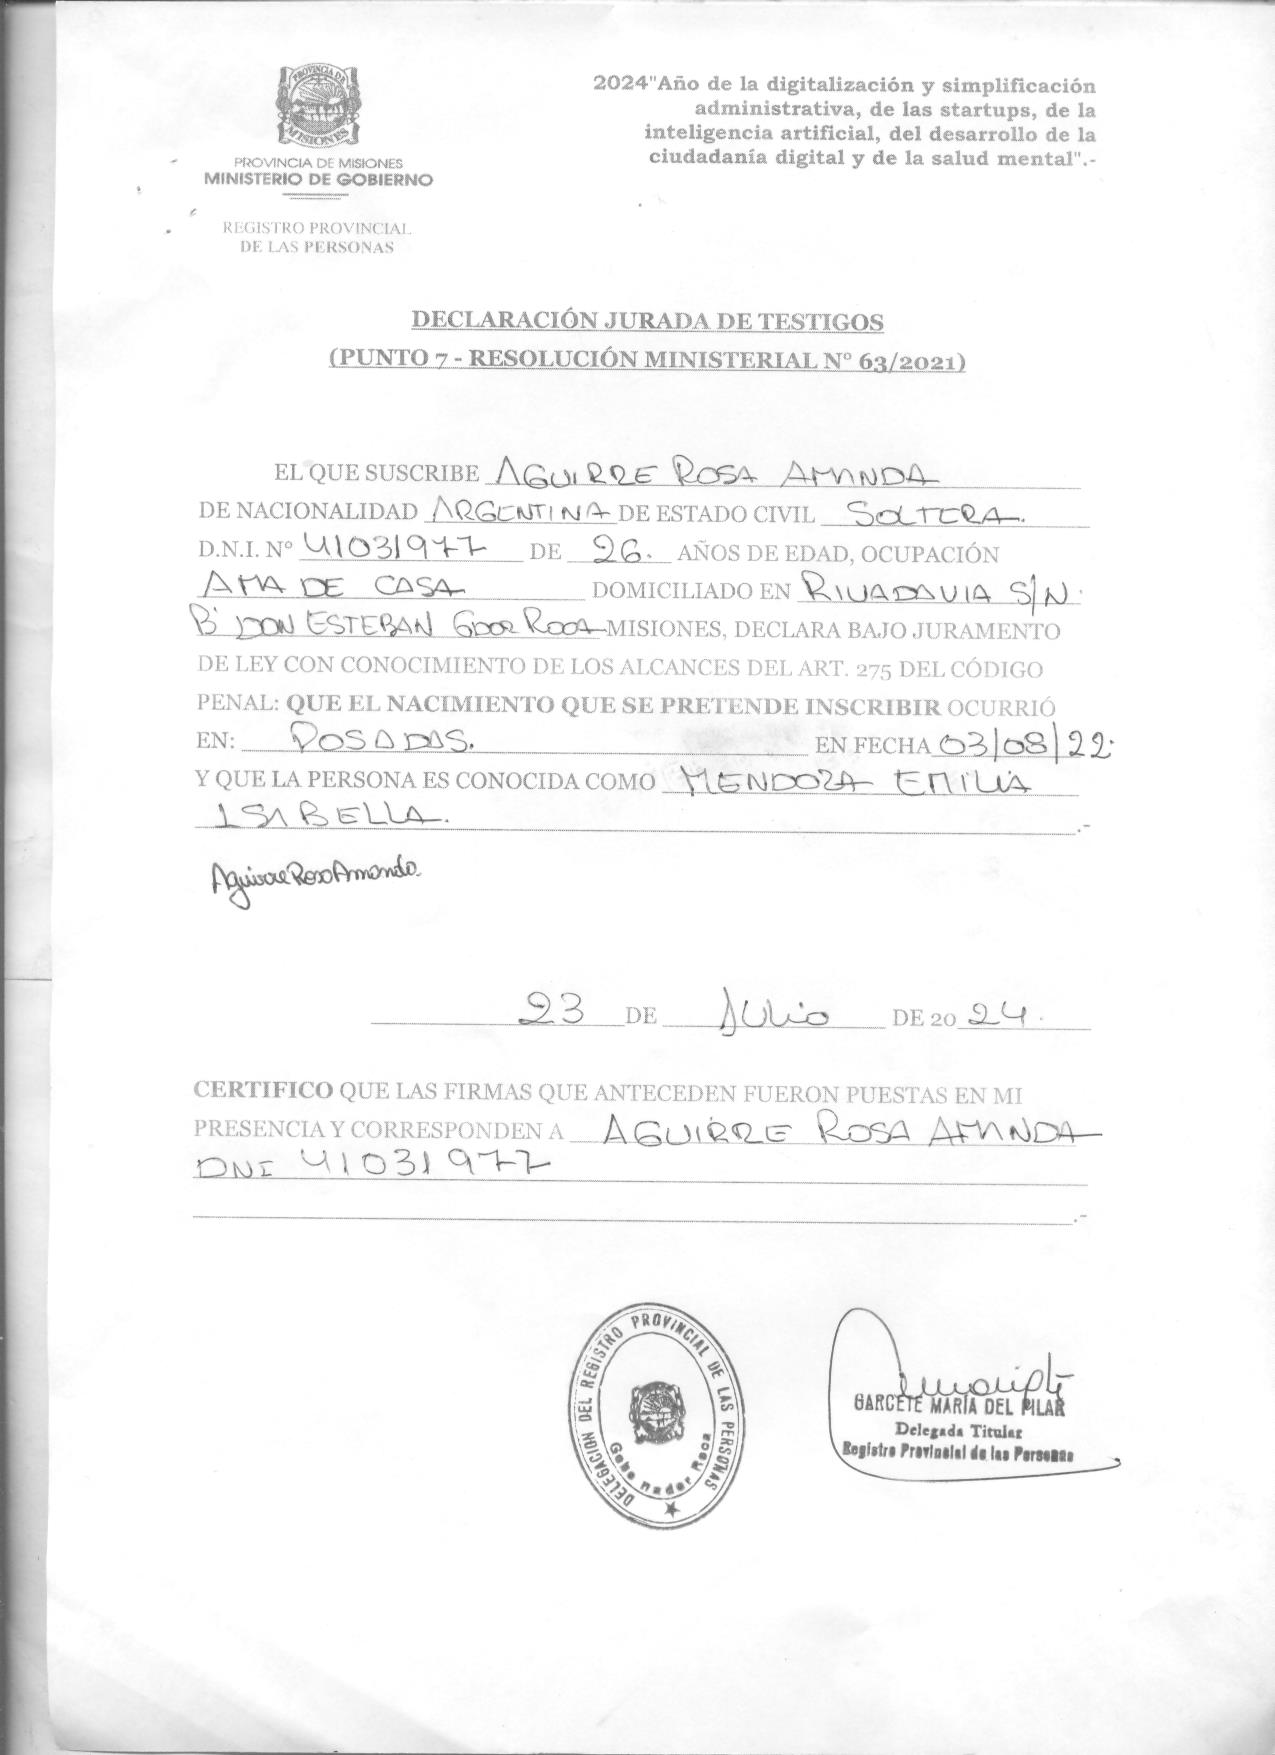 PROVINCIA DE
MISIONES
PROVINCIA DE MISIONES
MINISTERIO DE GOBIERNO
REGISTRO PROVINCIAL
DE LAS PERSONAS
2024"Año de la digitalización y simplificación
administrativa, de las startups, de la
inteligencia artificial, del desarrollo de la
ciudadanía digital y de la salud mental".-
DECLARACIÓN JURADA DE TESTIGOS
(PUNTO 7 - RESOLUCIÓN MINISTERIAL N° 63/2021)
EL QUE SUSCRIBE AGUIRRE ROSA AMANDA
DE NACIONALIDAD ARGENTINA DE ESTADO CIVIL SOLTERA.
D.N.I. N° 41031977 DE 26. AÑOS DE EDAD, OCUPACIÓN
AMA DE CASA DOMICILIADO EN RIVADAVIA S/N.
B° DON ESTEBAN GDOR ROCA MISIONES, DECLARA BAJO JURAMENTO
DE LEY CON CONOCIMIENTO DE LOS ALCANCES DEL ART. 275 DEL CÓDIGO
PENAL: QUE EL NACIMIENTO QUE SE PRETENDE INSCRIBIR OCURRIÓ
EN: POSADAS. EN FECHA 03/08/22.
Y QUE LA PERSONA ES CONOCIDA COMO MENDOZA EMILIA
ISABELLA. .-
Aguirre Rosa Amanda.
23 DE Julio DE 2024.
CERTIFICO QUE LAS FIRMAS QUE ANTECEDEN FUERON PUESTAS EN MI
PRESENCIA Y CORRESPONDEN A AGUIRRE ROSA AMANDA
DNI 41031977
.-
DELEGACION DEL REGISTRO PROVINCIAL DE LAS PERSONAS
Gobernador Roca
GARCETE MARIA DEL PILAR
Delegada Titular
Registro Provincial de las Personas